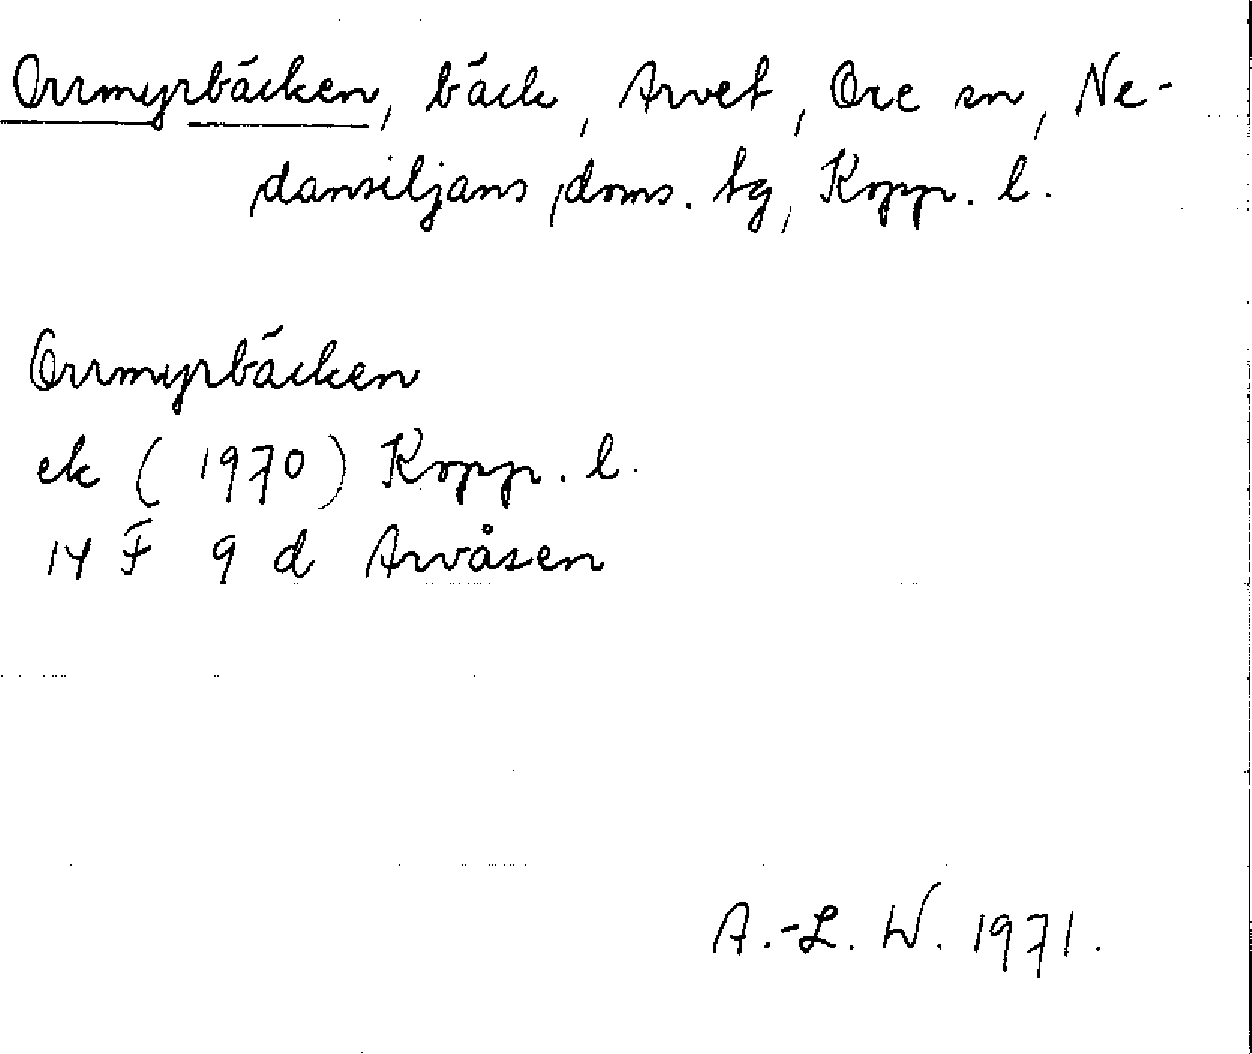 Orrmyrbäcken, bäck, Arvet, Ore sn, Ne-
dansiljans doms. tg, Kopp. l.
Orrmyrbäcken
ek (1970) Kopp. l.
14 F 9 d Arvåsen
A.-L. W. 1971.